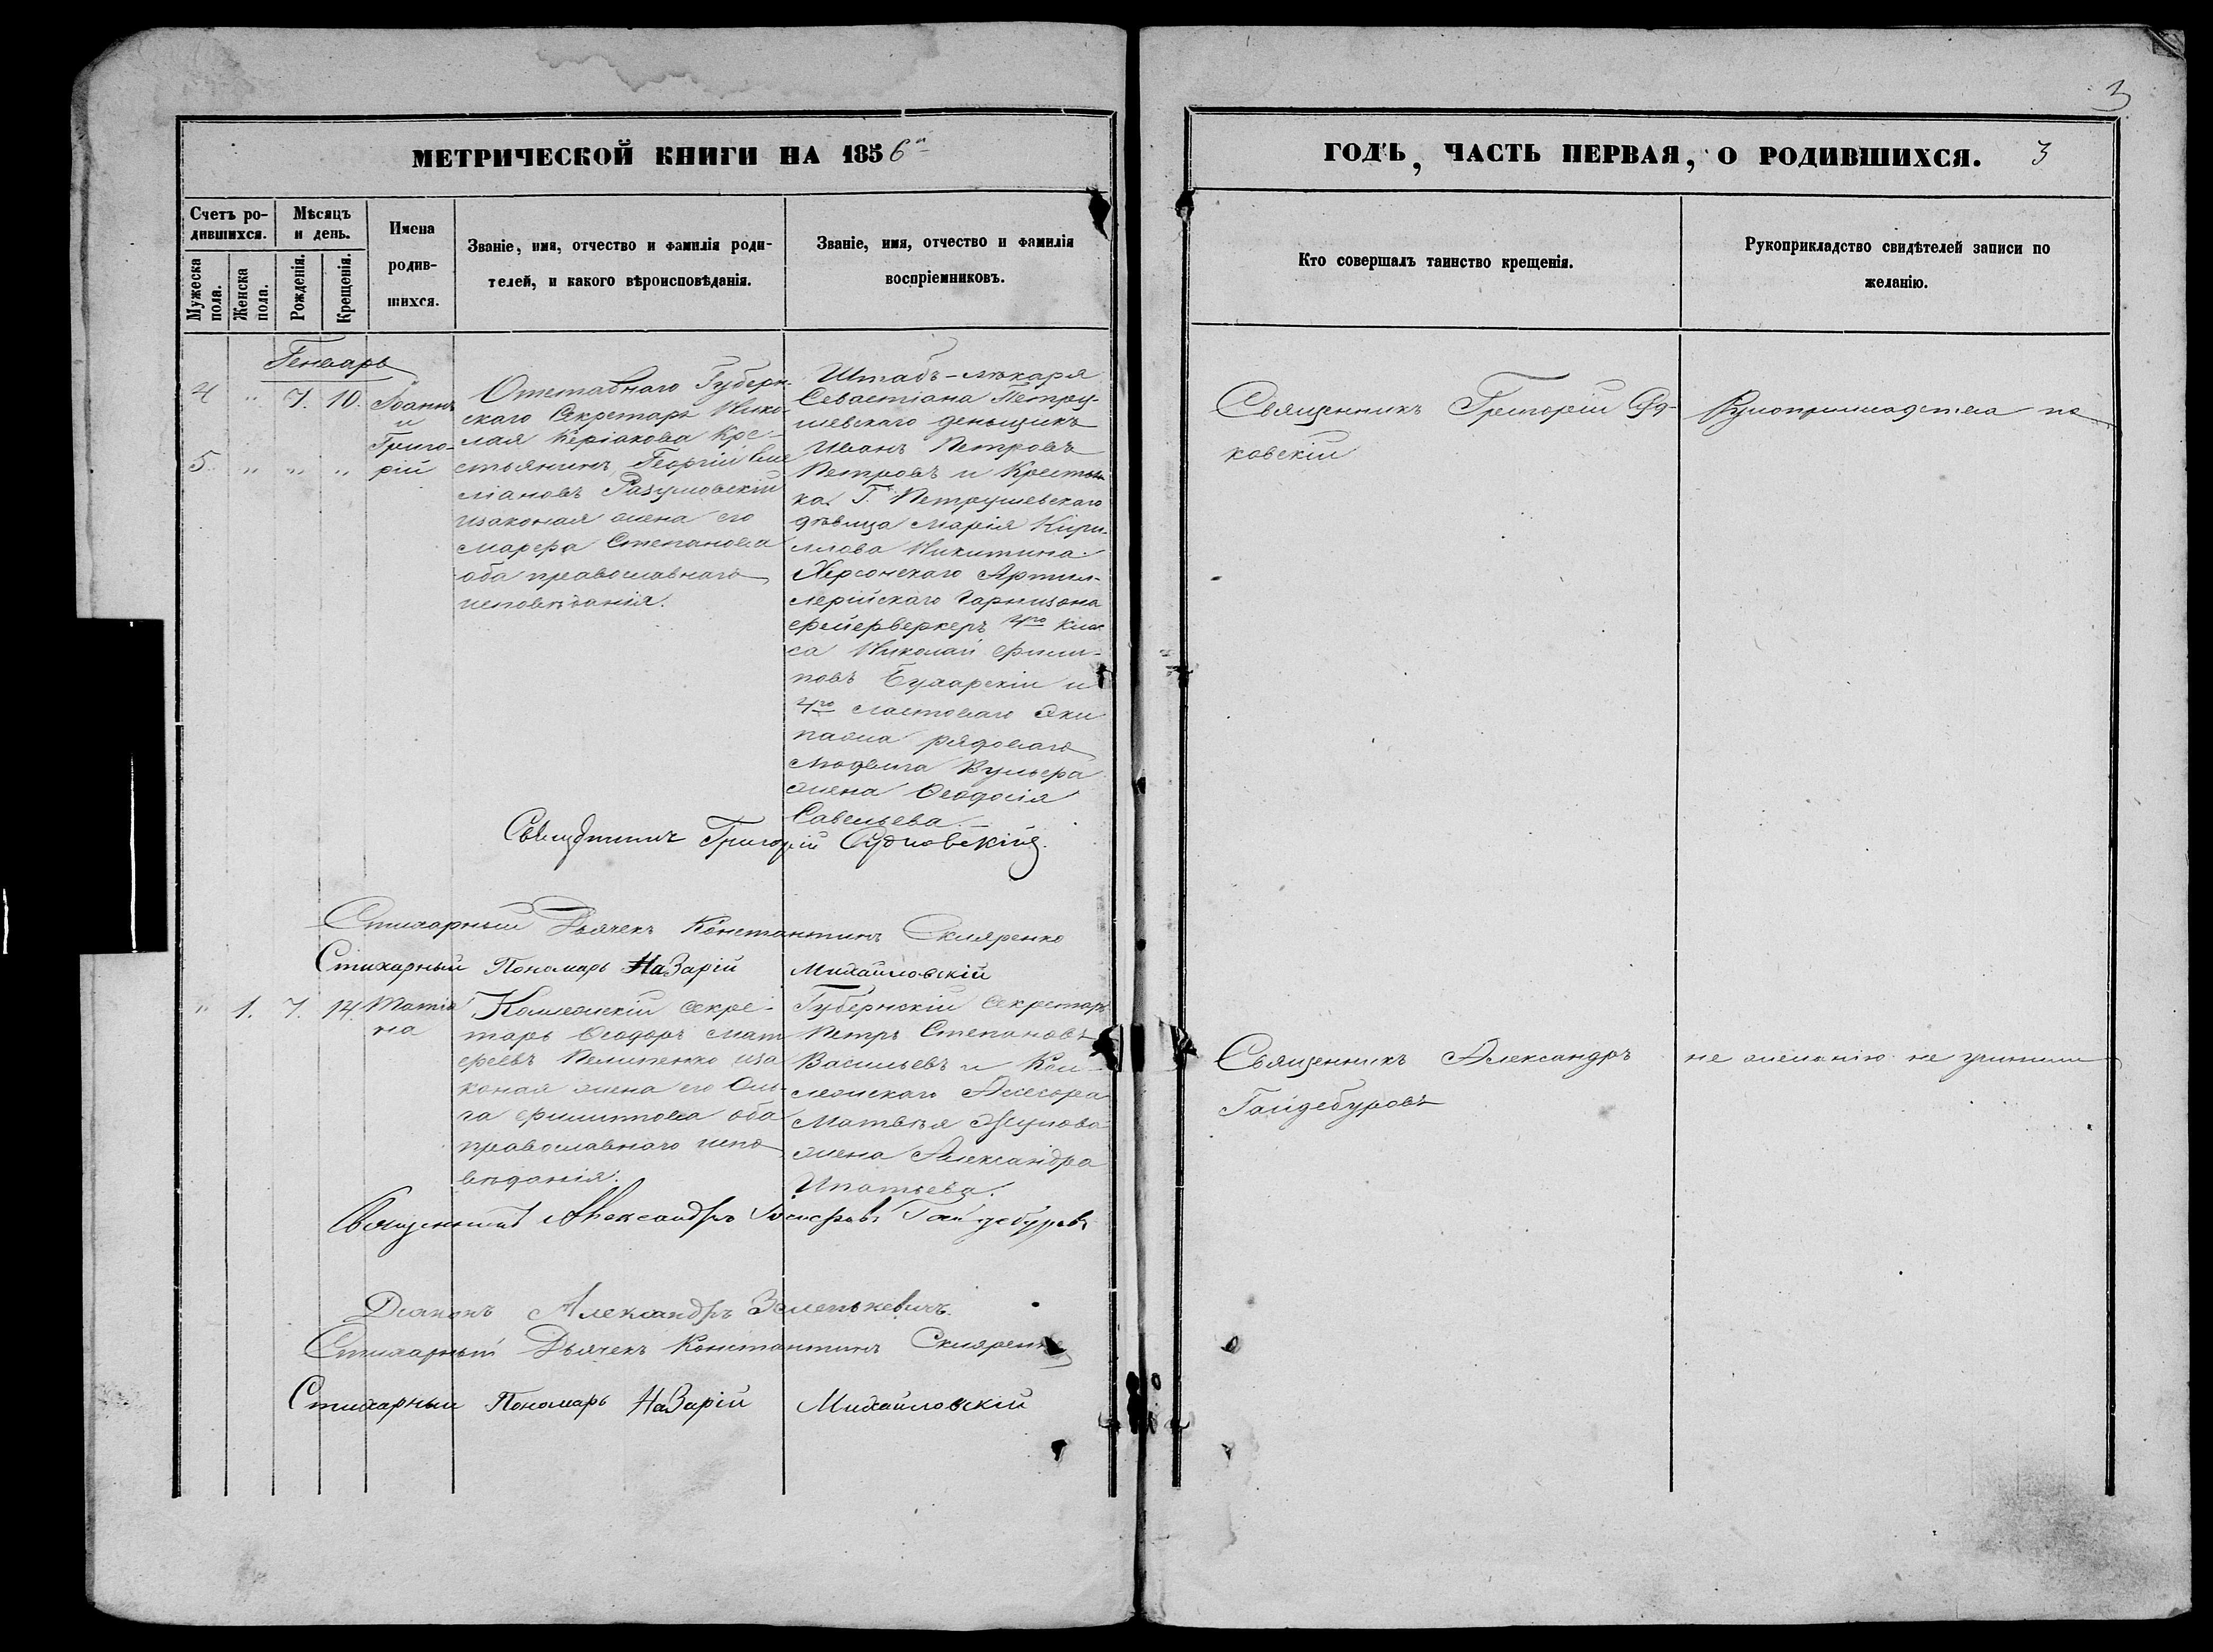 3
МЕТРИЧЕСКОЙ КНИГИ НА 1856й
ГОДЪ, ЧАСТЬ ПЕРВАЯ, О РОДИВШИХСЯ. 3
Счетъ ро-
дившихся.
Мѣсяцъ
и день.
Мужеска
пола.
Женска
пола.
Рожденія.
Крещенія.
Имена
родив-
шихся.
Званіе, имя, отчество и фамилія роди-
телей, и какого вѣроисповѣданія.
Званіе, имя, отчество и фамилія
воспріемниковъ.
Кто совершалъ таинство крещенія.
Рукоприкладство свидѣтелей записи по
желанію.
Генварь
4 " 7. 10.
5 " " "
Іоаннъ
и
Григо-
рій
Отставнаго Губерн-
скаго Секретаря Нико-
лая Керіакова Кре-
стьянинъ Георгій Еме
ліановъ Разумовскій
изаконая жена его
Марфа Степанова
оба православнаго
исповѣданія.
Штабъ-лѣкаря
Севастіана Петру-
шевскаго деньщикъ
Иванъ Петровъ
Петровъ и Крестьян
ка Г. Петрушевскаго
дѣвица Марія Кири-
лова Никитина.
Херсонскаго Артил-
лерійскаго Гарнизона
фейерверкеръ 4го клас
са Николай Филип-
повъ Бухарскій и
4го ластоваго Эки
пажа рядоваго
Людвига Вульфа
жена Феодосія
Савельева.
Священникъ Григорій Судковскій
Рукоприкладства по
Священникъ Григорій Судковскій.
Стихарный Дьячекъ Константинъ Скляренко
Стихарный Пономарь Назарій Михайловскій
" 1. 7. 14.
Татіа
на
Коллежскій Секре-
тарь Феодоръ Мат
феевъ Пелипенко иза
коная жена его Оль-
га Филиппова оба
православнаго испо
вѣданія.
Губернскій Секретарь
Петръ Степановъ
Васильевъ и Кол-
лежскаго Асессора
Матвѣя
жена Александра
Игнатьева.
Священникъ Александръ
Гайдебуровъ
не желанію не учинили
Священникъ Александръ Гайдебуровъ
Діаконъ Александръ Зеленкевичъ.
Стихарный Дьячекъ Константинъ Скляренко
Стихарный Пономарь Назарій Михайловскій